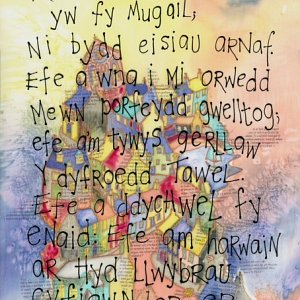 yw fy Mugail;
Ni bydd eisiau arnaf.
Efe a wna i mi orwedd
Mewn porfeydd gwelltog;
efe am tywys gerllaw
Y dyfroedd Tawel.
Efe a ddychwel fy
enaid: Efe am harwain
ar Hyd Llwybrau